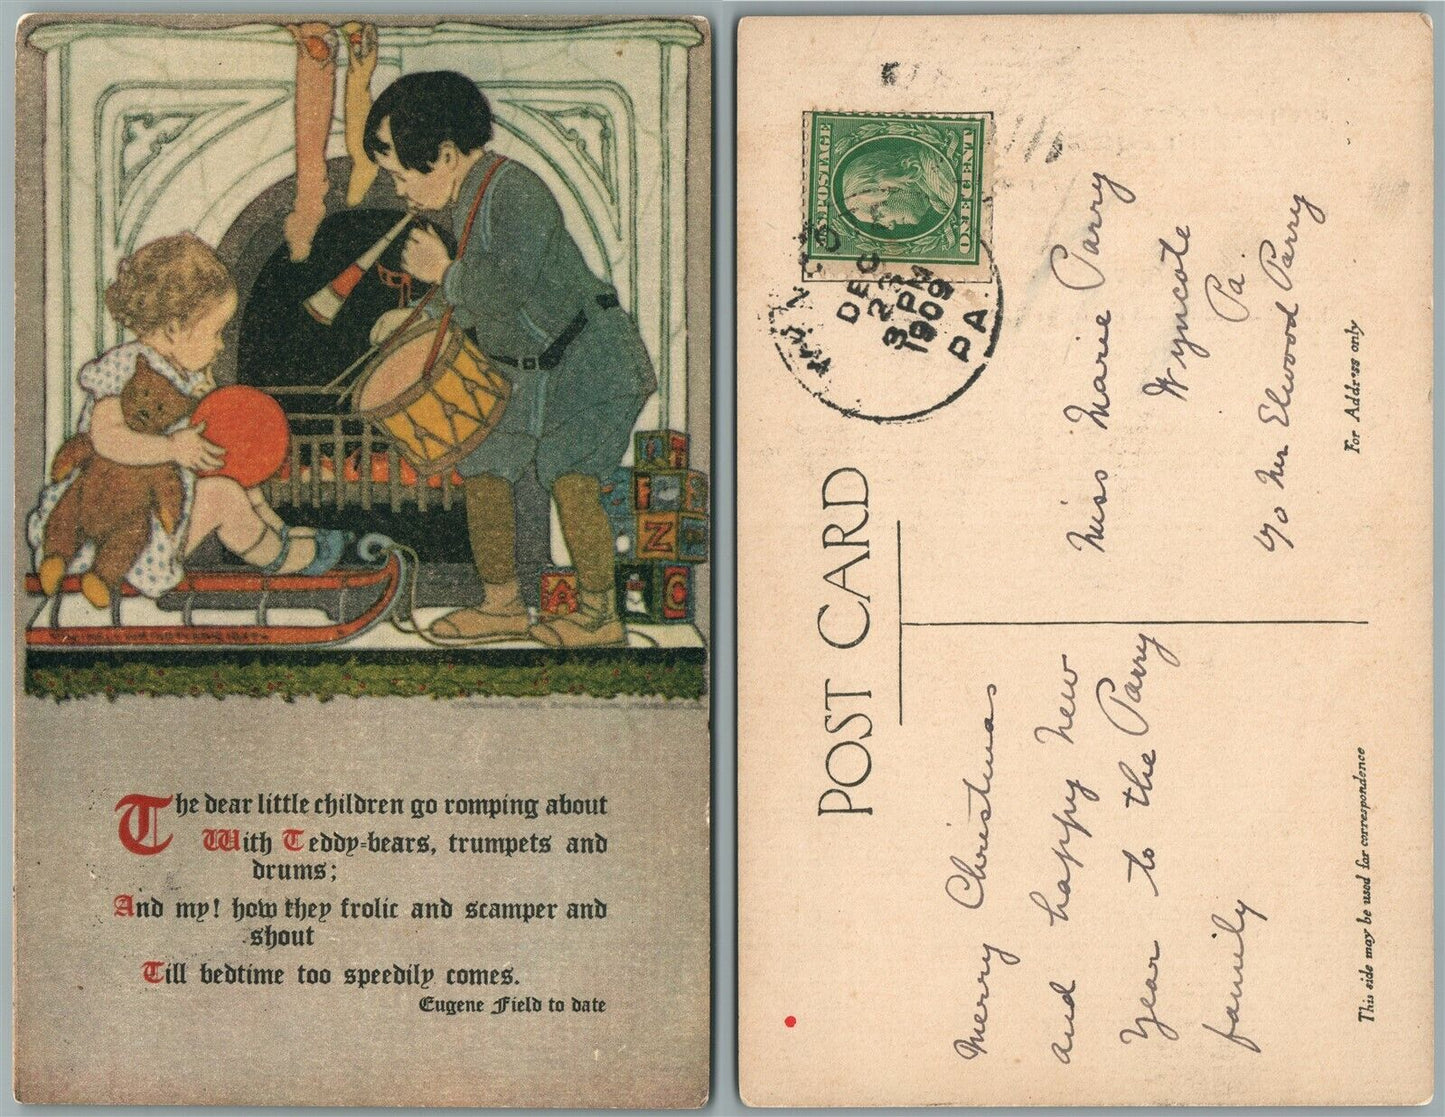 The dear little children go romping about
With Teddy-bears, trumpets and
drums;
And my! how they frolic and scamper and
shout
Till bedtime too speedily comes.
Eugene Field to date
A
Z
A
C
POST CARD
U.S. POSTAGE
ONE CENT
DEC
23
3 PM
1909
PA.
Miss Marie Parry
Wyncote
Pa.
c/o Mr Elwood Parry
For Address only
Merry Christmas
and happy New
Year to the Parry
family
This side may be used for correspondence